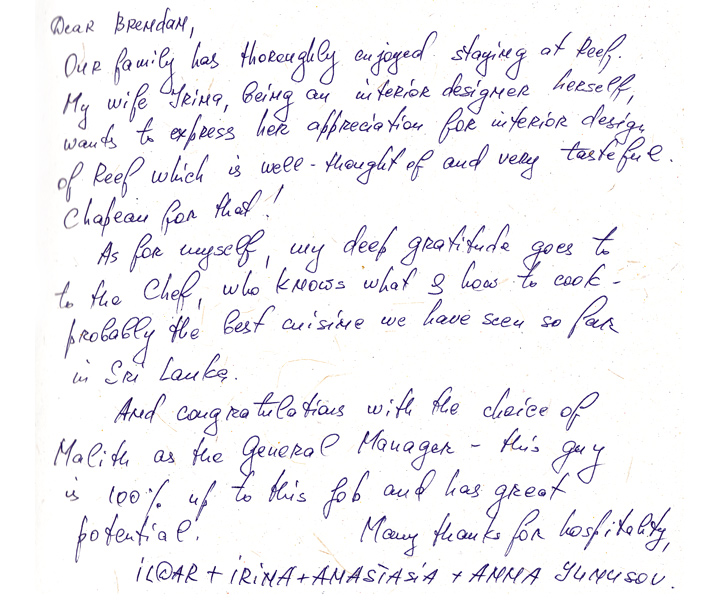 Dear Brendan,
Our family has thoroughly enjoyed staying at Reef.
My wife Irina, being an interior designer herself,
wants to express her appreciation for interior design
of Reef which is well-thought of and very tasteful.
Chapeau for that!
As for myself, my deep gratitude goes to
to the Chef, who knows what & how to cook -
probably the best cuisine we have seen so far
in Sri Lanka.
And congratulations with the choice of
Malith as the General Manager - this guy
is 100% up to this job and has great
potential!
Many thanks for hospitality,
IRINA + ANASTASIA + ANNA YUNUSOV.